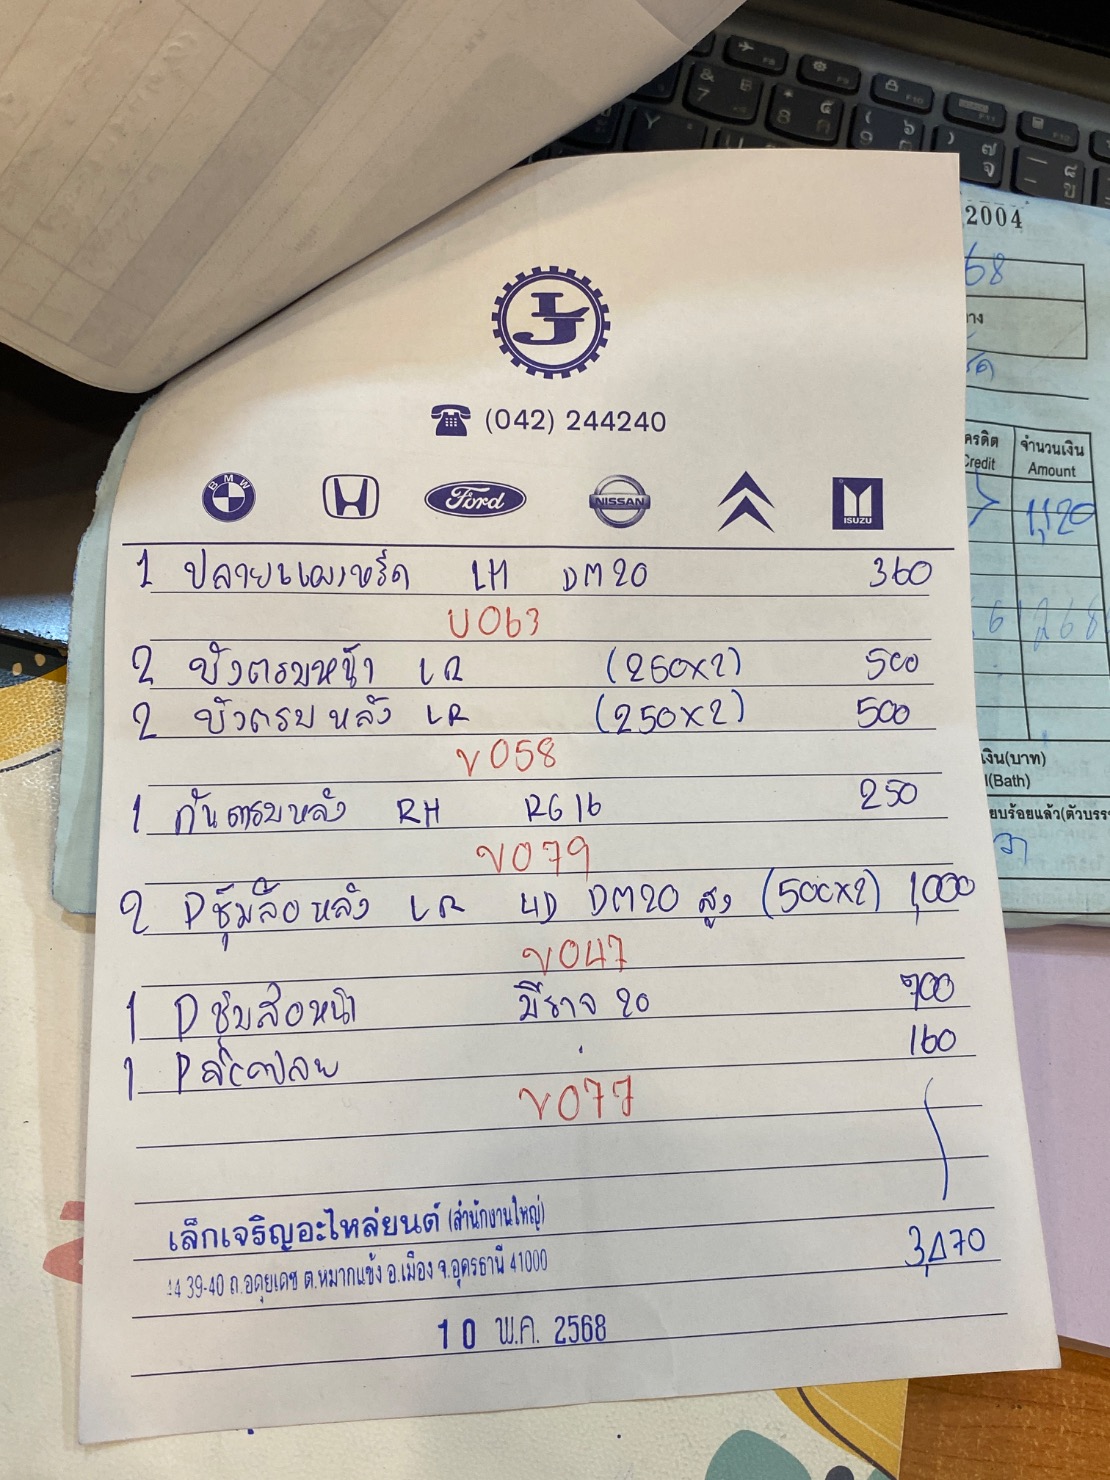 LJ
(042) 244240
BMW
Ford
NISSAN
ISUZU
1 ปลายแผงหรีด LH DM20 360
V063
2 บังตรบหน้า LR (250x2) 500
2 บังตรบหลัง LR (250x2) 500
V058
1 กันตรบหลัง RH RG16 250
V079
2 Pซุ้มล้อหลัง LR 4D DM20 สูง (500x2) 1,000
V047
1 Pซุ้มล้อหน้า มีราง 20 700
1 160
V077
3,470
เล็กเจริญอะไหล่ยนต์ (สำนักงานใหญ่)
39-40 ถ.อดุยเดช ต.หมากแข้ง อ.เมือง จ.อุดรธานี 41000
10 พ.ค. 2568
2004
68
าง
ครดิต จำนวนเงิน
Credit Amount
1,120
1,268
เงิน(บาท)
(Bath)
ยบร้อยแล้ว(ตัวบรร
F8 F9 F10 F11
& 7
* 8
Y